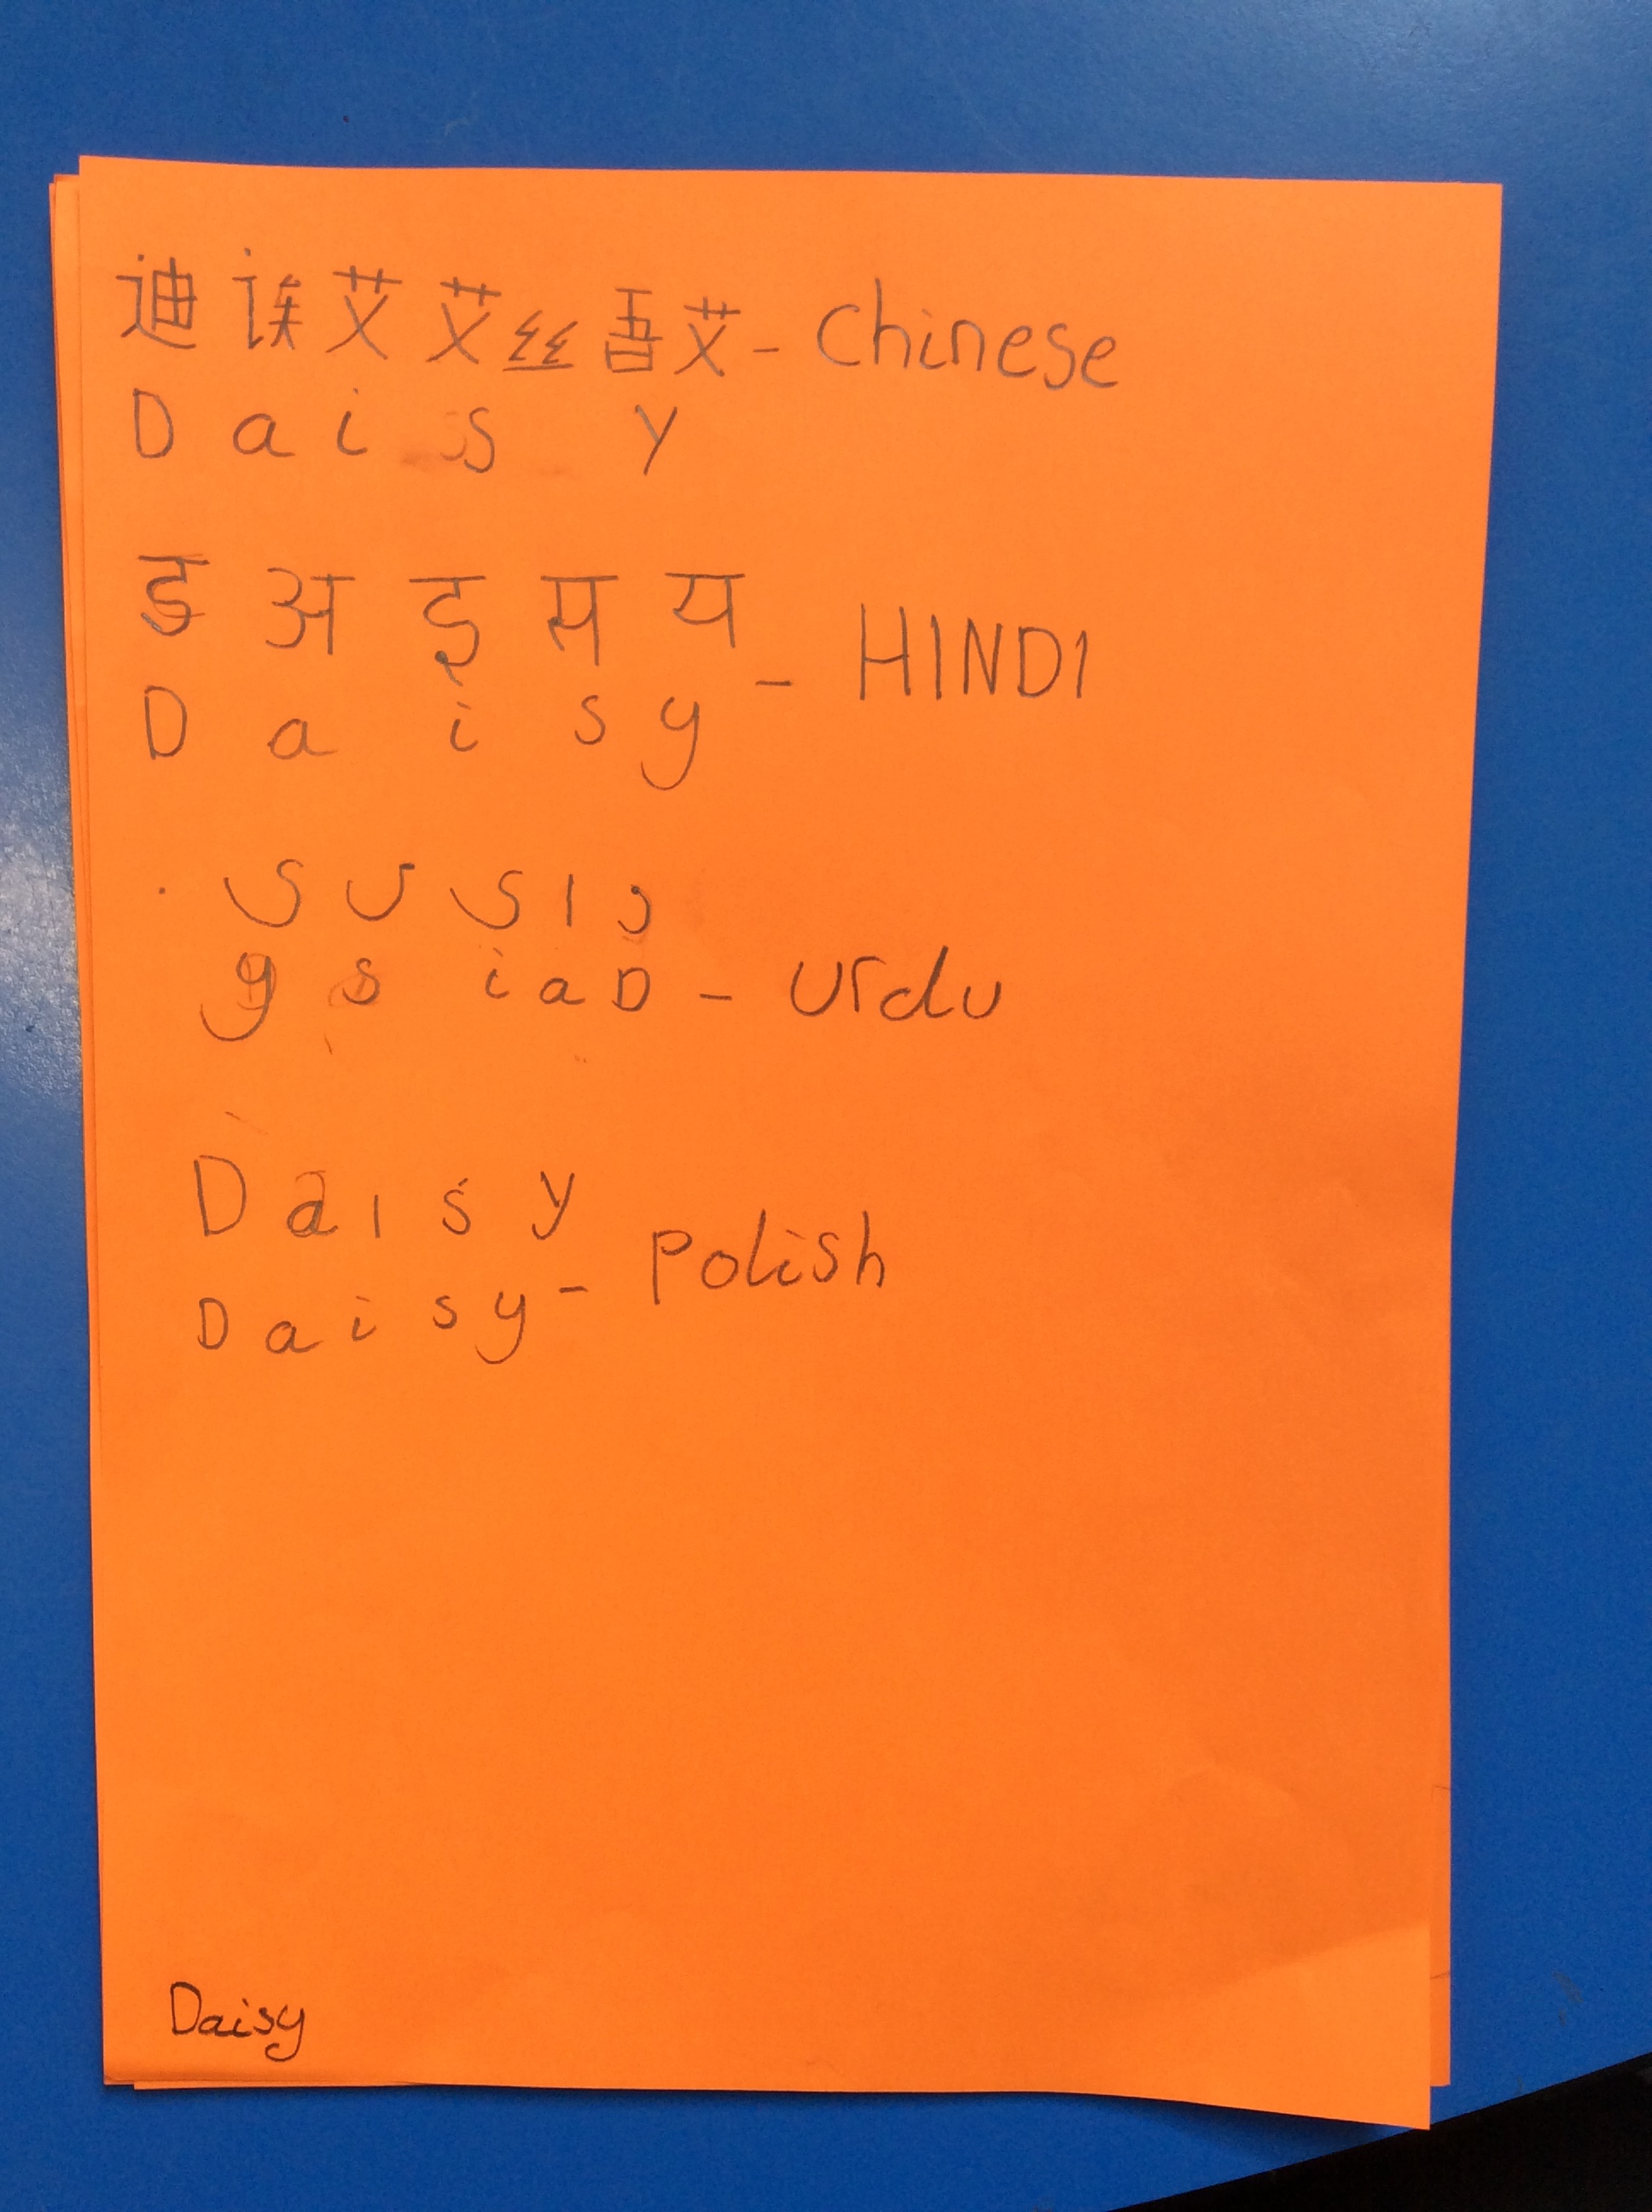 迪 诶 艾 艾丝 吾艾 - Chinese
D a i s y
ड अ इ स य - HINDI
D a i s y
ی س ی ا د
y s i a D - Urdu
D a ı ś y
D a i s y - Polish
Daisy